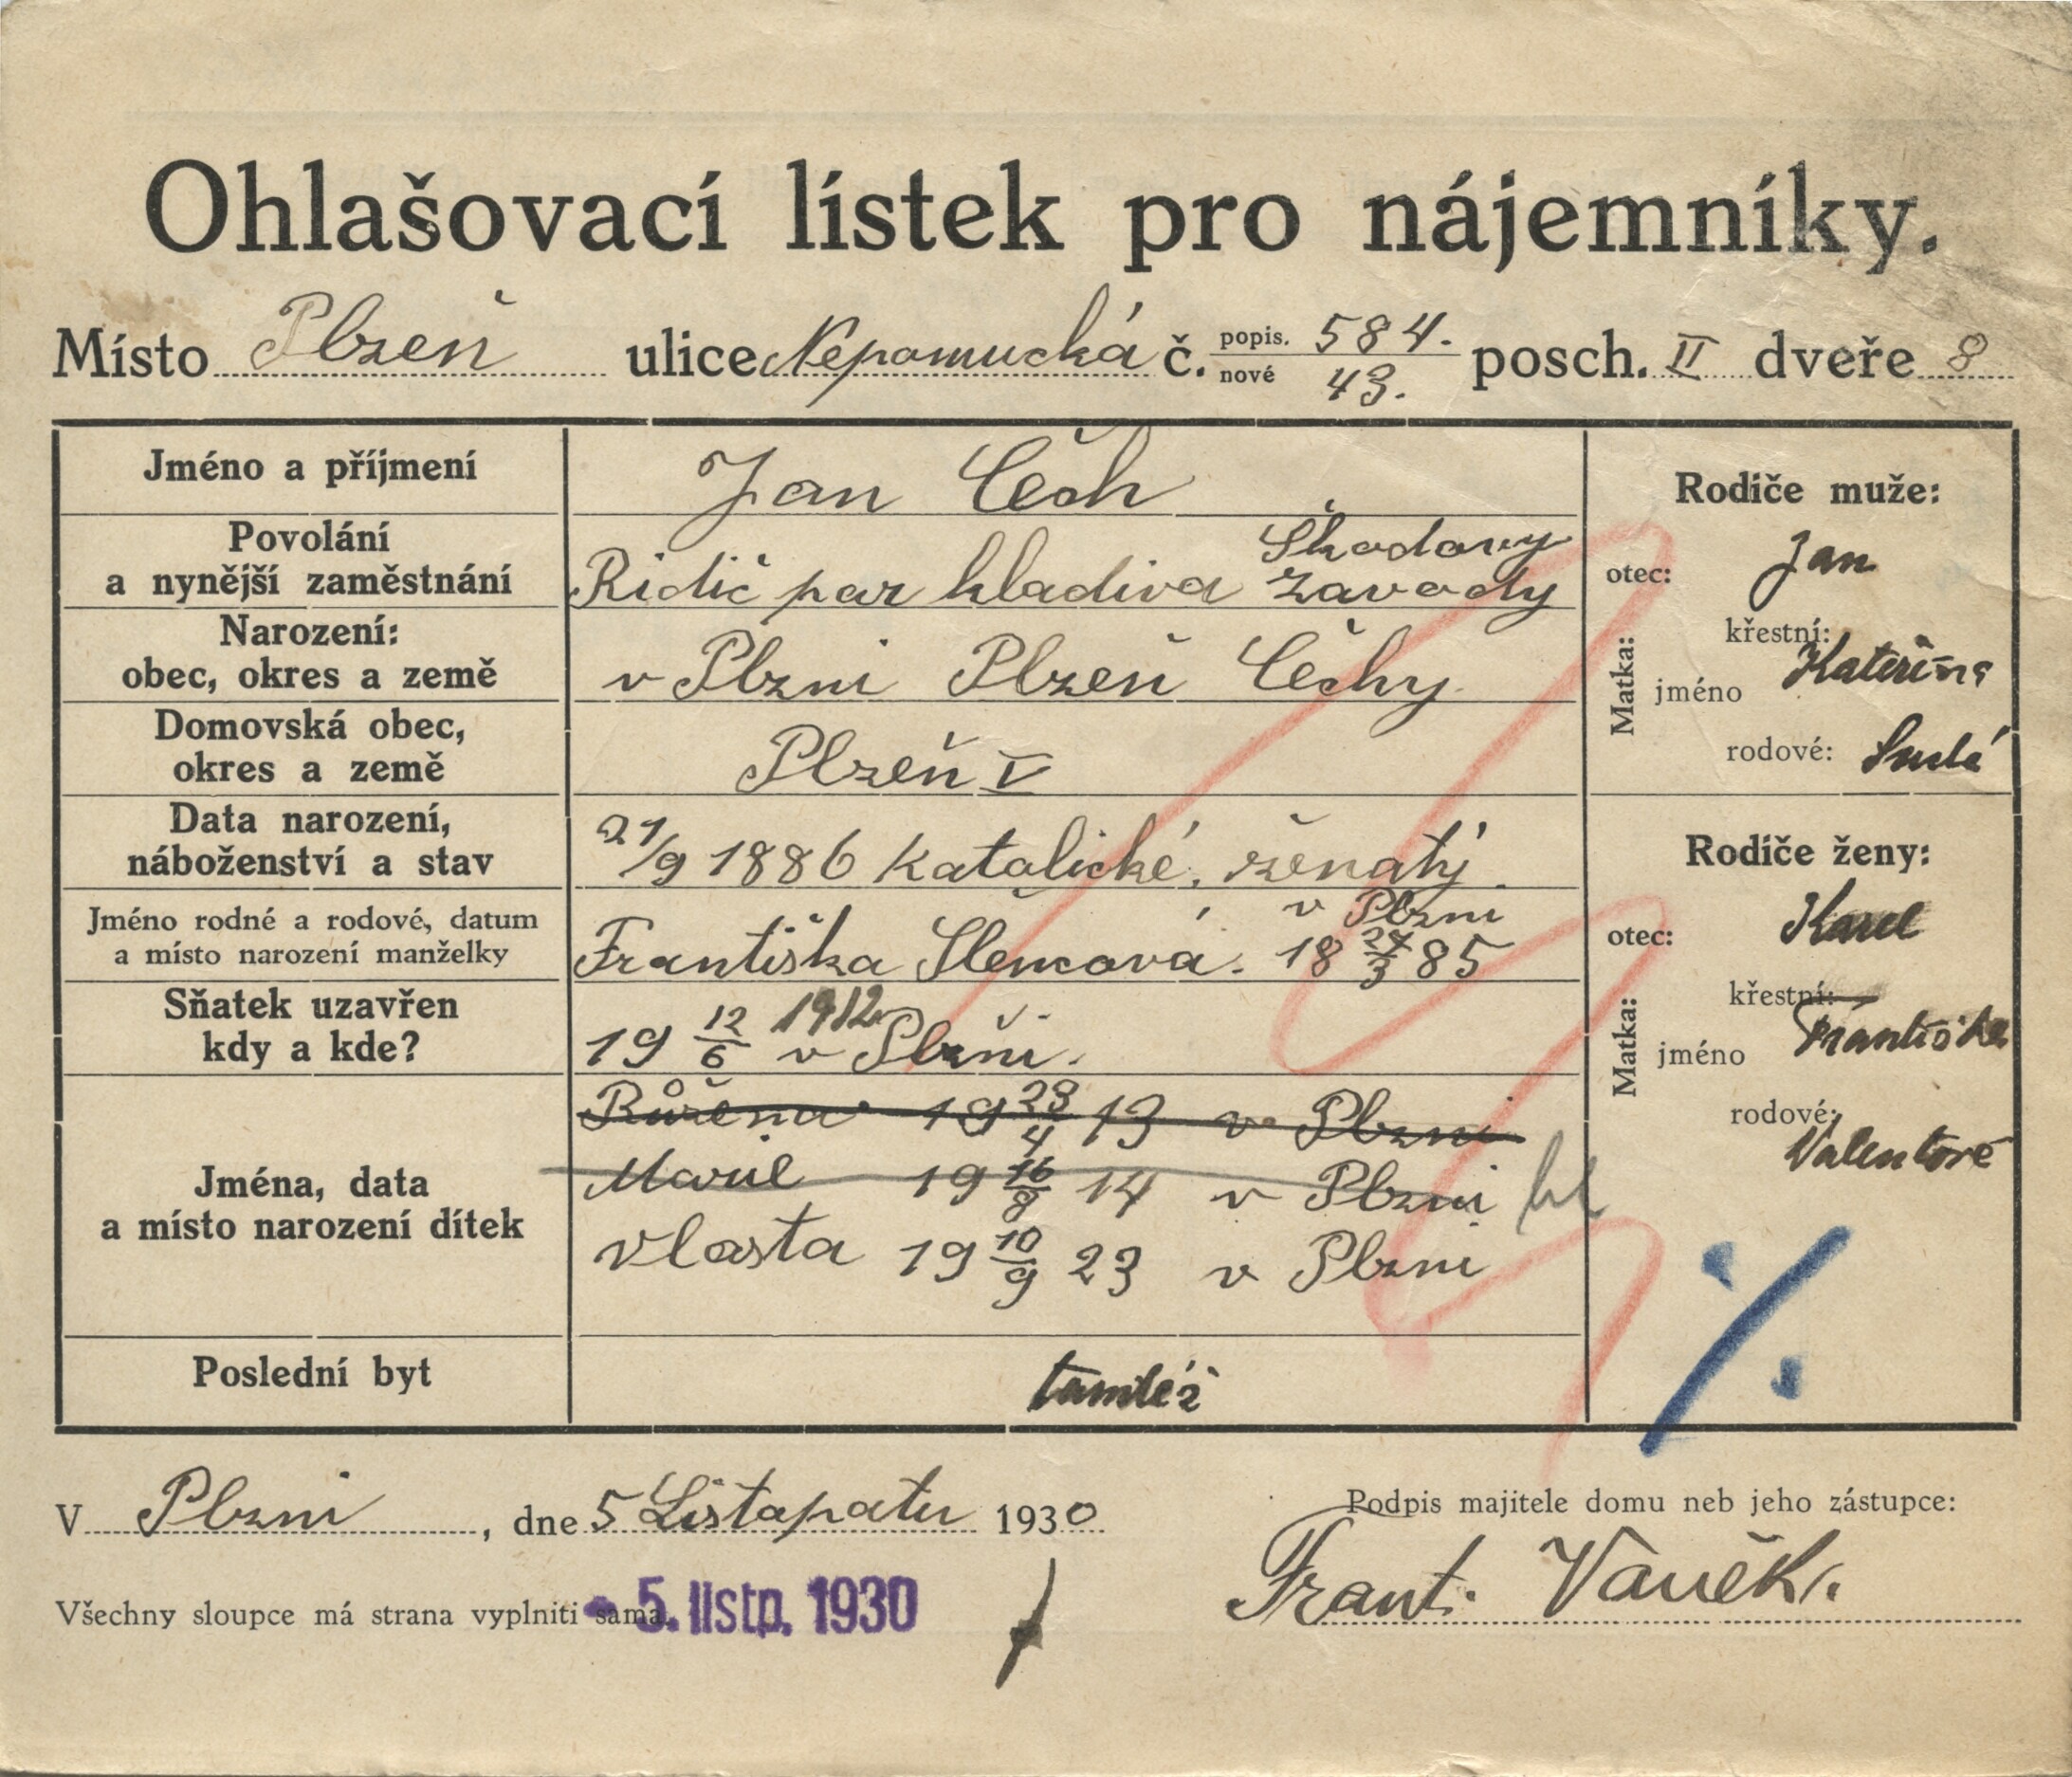 Ohlašovací lístek pro nájemníky.
Místo Plzeň ulice Nepomucká č. popis. 584. nové 43. posch. II dveře 8
Jméno a příjmení
Jan Čech
Povolání
a nynější zaměstnání
Škodovy
Ridič par hladiva závody
Narození:
obec, okres a země
v Plzni Plzeň Čechy
Domovská obec,
okres a země
Plzeň V
Data narození,
náboženství a stav
21/9 1886 katolické, ženatý.
Jméno rodné a rodové, datum
a místo narození manželky
v Plzni
Františka 18 24/3 85
Sňatek uzavřen
kdy a kde?
19 12/6 1912 v Plzni.
Jména, data
a místo narození dítek
Růžena 19 23/4 13 v Plzni
Marie 19 16/8 14 v Plzni
Vlasta 19 10/9 23 v Plzni
Poslední byt
tamtéž
Rodiče muže:
otec: Jan
Matka:
křestní:
jméno Kateřina
rodové:
Rodiče ženy:
otec: Karel
Matka:
křestní:
jméno Františka
rodové:
V Plzni, dne 5 Listopatu 1930
Podpis majitele domu neb jeho zástupce:
Frant. Vaněk
Všechny sloupce má strana vyplniti sama.
- 5. listp. 1930